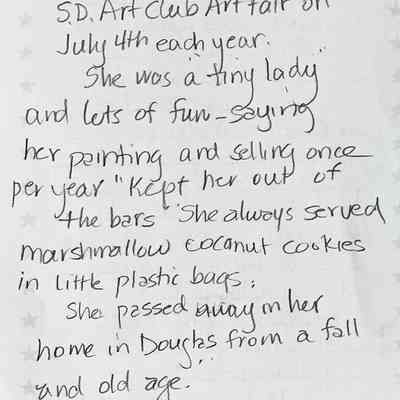 S.D. Art Club Art fair on
July 4th each year.
She was a "tiny lady"
and lots of fun - saying
her painting and selling once
per year "Kept her out of
the bars" She always served
marshmallow coconut cookies
in little plastic bags.
She passed away in her
home in Douglas from a fall
and old age.